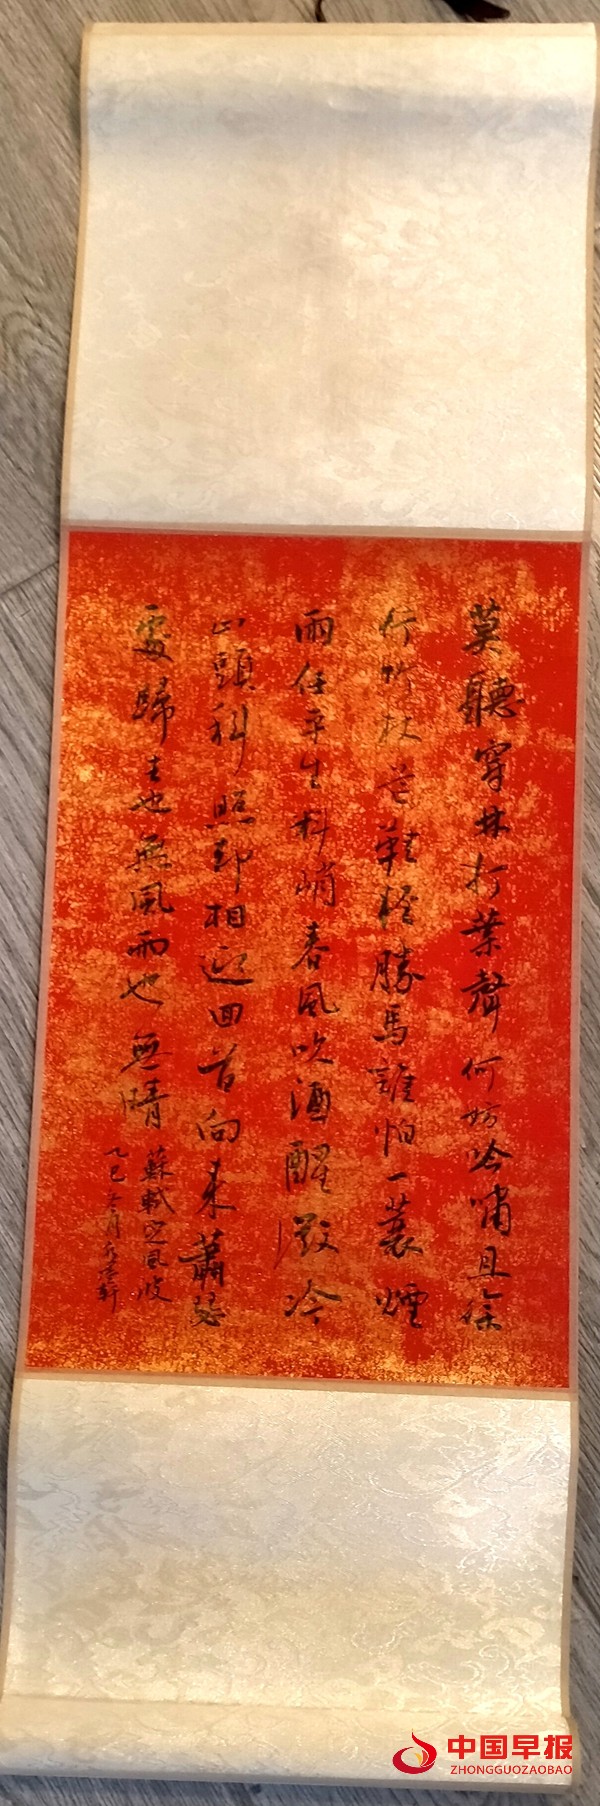 莫聽穿林打葉聲何妨吟嘯且徐
行竹杖芒鞋輕勝馬誰怕一蓑煙
雨任平生料峭春風吹酒醒微冷
山頭斜照卻相迎回首向來蕭瑟
處歸去也無風雨也無晴
蘇軾定風波
乙巳
中国早报
ZHONGGUOZAOBAO